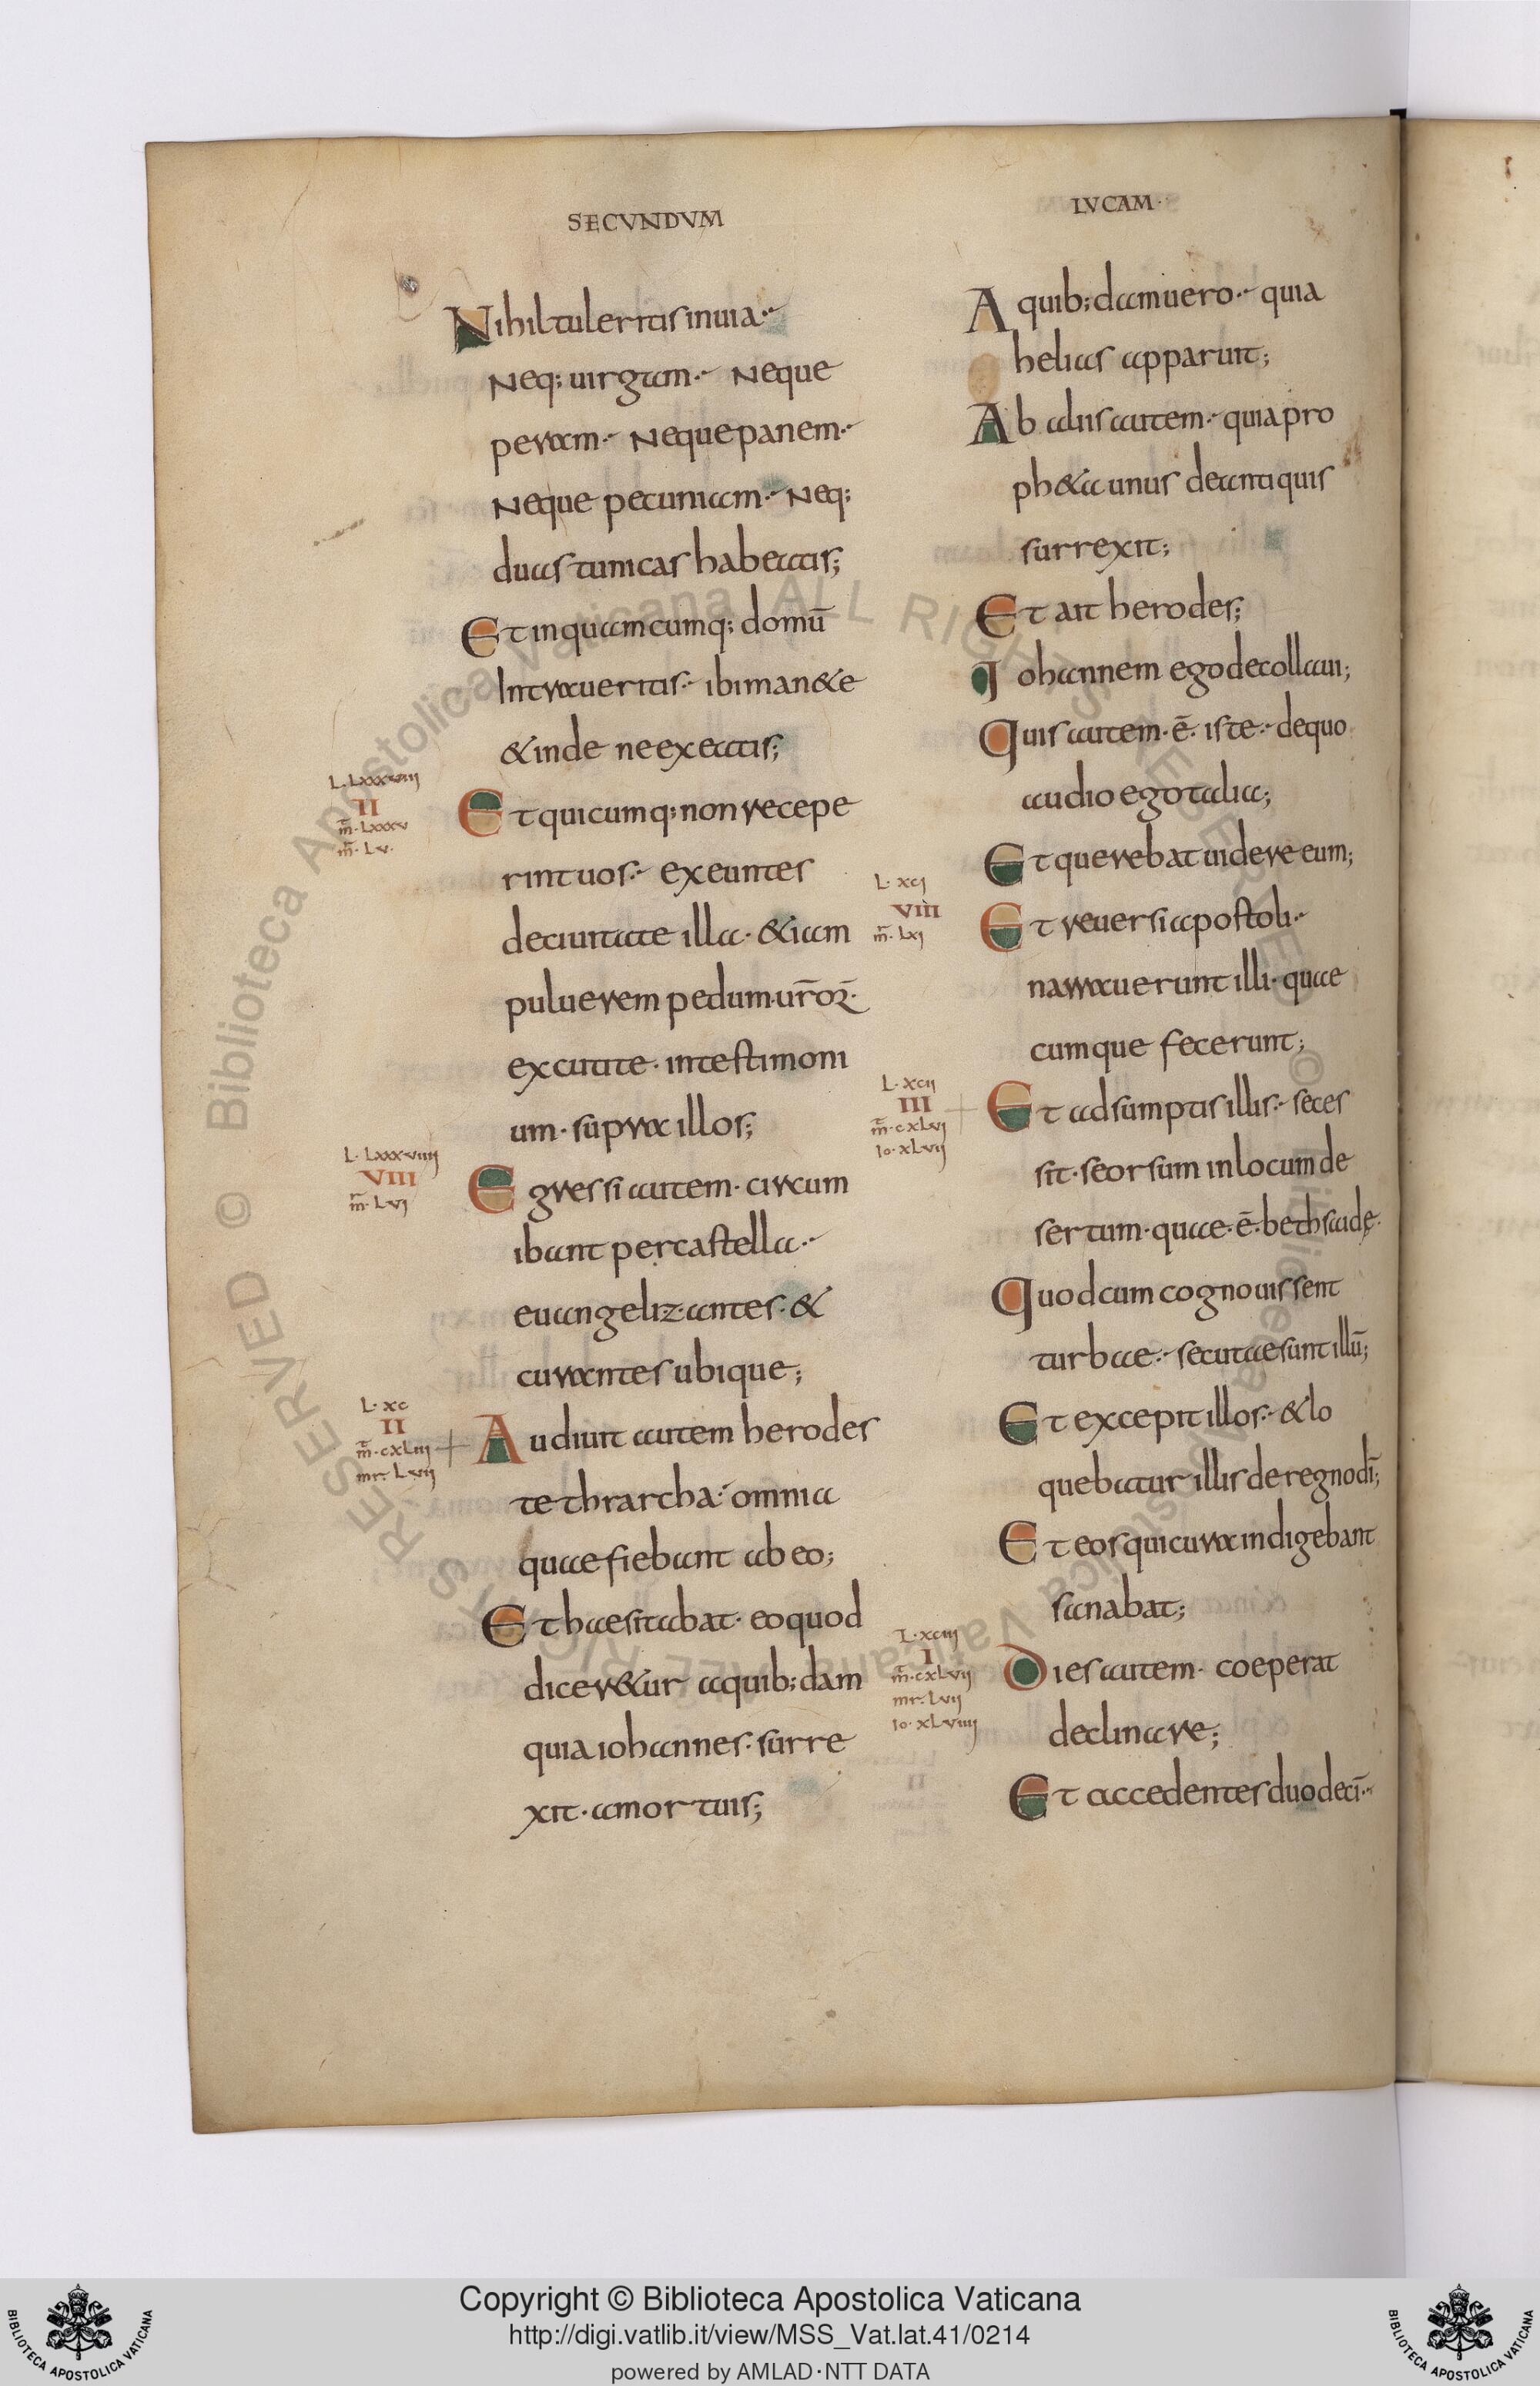 SECVNDVM
LVCAM·
Nihil tuleritis in uia·
Neq; uirgam· Neque
peram· Neque panem·
Neque pecuniam· Neq;
duas tunicas habeatis;
Et in quamcumq; domū
Intraueritis· ibi man&e
& inde ne exeatis;
L· Lxxxviiij
II
m̄· Lxxxv
m̄· Lv·
Et quicumq; non recepe
rint uos· exeuntes
de ciuitate illa· & iam
puluerem pedum· ur̄oꝝ·
excutite· in testimoni
um· supra illos;
L· Lxxxviiij
VIII
m̄· Lvj
Egressi autem· circum
ibant per castella·
euangelizantes· &
curantes ubique;
L· xc
II
m̄· cxLiij
mr· Lvij
Audiuit autem herodes
tethrarcha· omnia
quae fiebant ab eo;
Et haesitabat· eo quod
dicer&ur a quib;dam
quia iohannes· surre
xit· a mortuis;
A quib;dam uero· quia
helias apparuit;
Ab aliis autem· quia pro
ph&a unus de antiquis
surrexit;
Et ait herodes;
Iohannem ego decollaui;
Quis autem· ē· iste· de quo
audio ego talia;
Et querebat uidere eum;
L· xcj
VIII
m̄· Lxj
Et reuersi apostoli·
narrauerunt illi· quae
cumque fecerunt;
L· xcij
III
m̄· cxLvj
Io· xLvij
Et adsumptis illis· seces
sit· seorsum in locum de
sertum· quae· ē· bethsaidę·
Quod cum cognouissent
turbae· secutae sunt illū;
Et excepit illos· & lo
quebatur illis de regno dī;
Et eos qui cura indigebant
sanabat;
L· xciij
I
m̄· cxLvij
mr· Lvij
Io· xLviiij
Dies autem· coeperat
declinare;
Et accedentes duodecī·
Copyright © Biblioteca Apostolica Vaticana
http://digi.vatlib.it/view/MSS_Vat.lat.41/0214
powered by AMLAD·NTT DATA
BIBLIOTECA APOSTOLICA VATICANA
BIBLIOTECA APOSTOLICA VATICANA